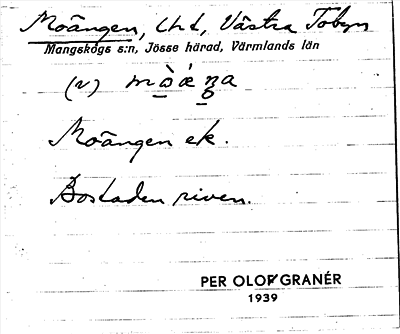 Moängen, Västra Tobyn
Mangskogs s:n, Jösse härad, Värmlands län
(v)
Moängen ek.
Bostaden riven.
PER OLOF GRANÉR
1939